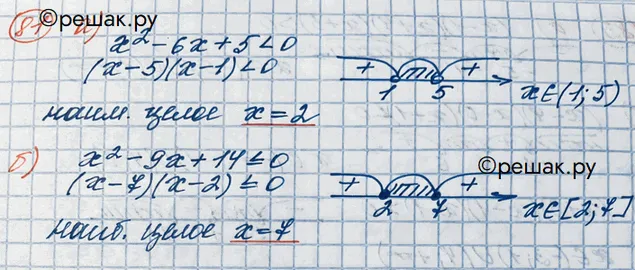 81 а) ©решак.ру
x² - 6x + 5 < 0
(x - 5)(x - 1) < 0
+ +
1 5 x ∈ (1; 5)
наим. целое x = 2
б) x² - 9x + 14 ≤ 0
©решак.ру
(x - 7)(x - 2) ≤ 0
+ +
2 7 x ∈ [2; 7]
наиб. целое x = 7